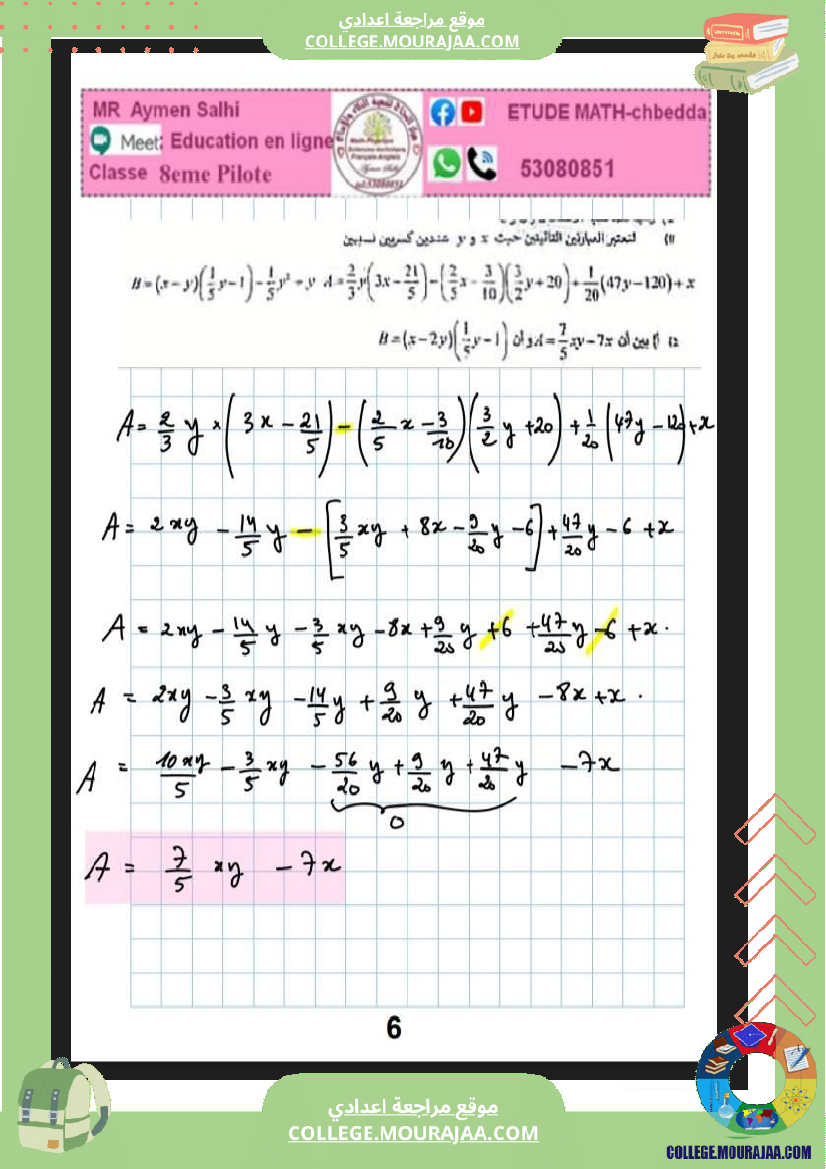 موقع مراجعة اعدادي
COLLEGE.MOURAJAA.COM
MR Aymen Salhi
Meet: Education en ligne
Classe 8eme Pilote
ETUDE MATH-chbedda
53080851
(1 لتعتبر العبارتين التاليتين حيث x و y عددين كسريين نسبيين
B=(x-y)(1/5 y-1)-1/5 y²+y A=2/3 y(3x-21/5)-(2/5 x-3/10)(3/2 y+20)+1/20(47y-120)+x
2) أ) بين أن A=7/5 xy-7x و أن B=(x-2y)(1/5 y-1)
A= 2/3 y × (3x - 21/5) - (2/5 x - 3/10)(3/2 y +20) + 1/20 (47y - 120) + x
A= 2xy - 14/5 y - [3/5 xy + 8x - 9/20 y - 6] + 47/20 y - 6 + x
A = 2xy - 14/5 y - 3/5 xy - 8x + 9/20 y + 6 + 47/20 y - 6 + x.
A = 2xy - 3/5 xy - 14/5 y + 9/20 y + 47/20 y - 8x + x.
A = 10xy/5 - 3/5 xy - 56/20 y + 9/20 y + 47/20 y - 7x
0
A = 7/5 xy - 7x
6
موقع مراجعة اعدادي
COLLEGE.MOURAJAA.COM
COLLEGE.MOURAJAA.COM